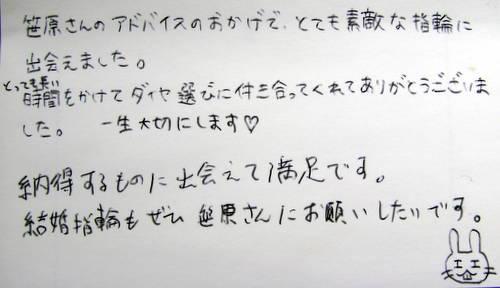 笹原さんのアドバイスのおかげで、とても素敵な指輪に
出会えました。
とっても長い
時間をかけてダイヤ選びに付き合ってくれてありがとうございま
した。 一生大切にします♡
納得するものに出会えて満足です。
結婚指輪もぜひ笹原さんにお願いしたいです。